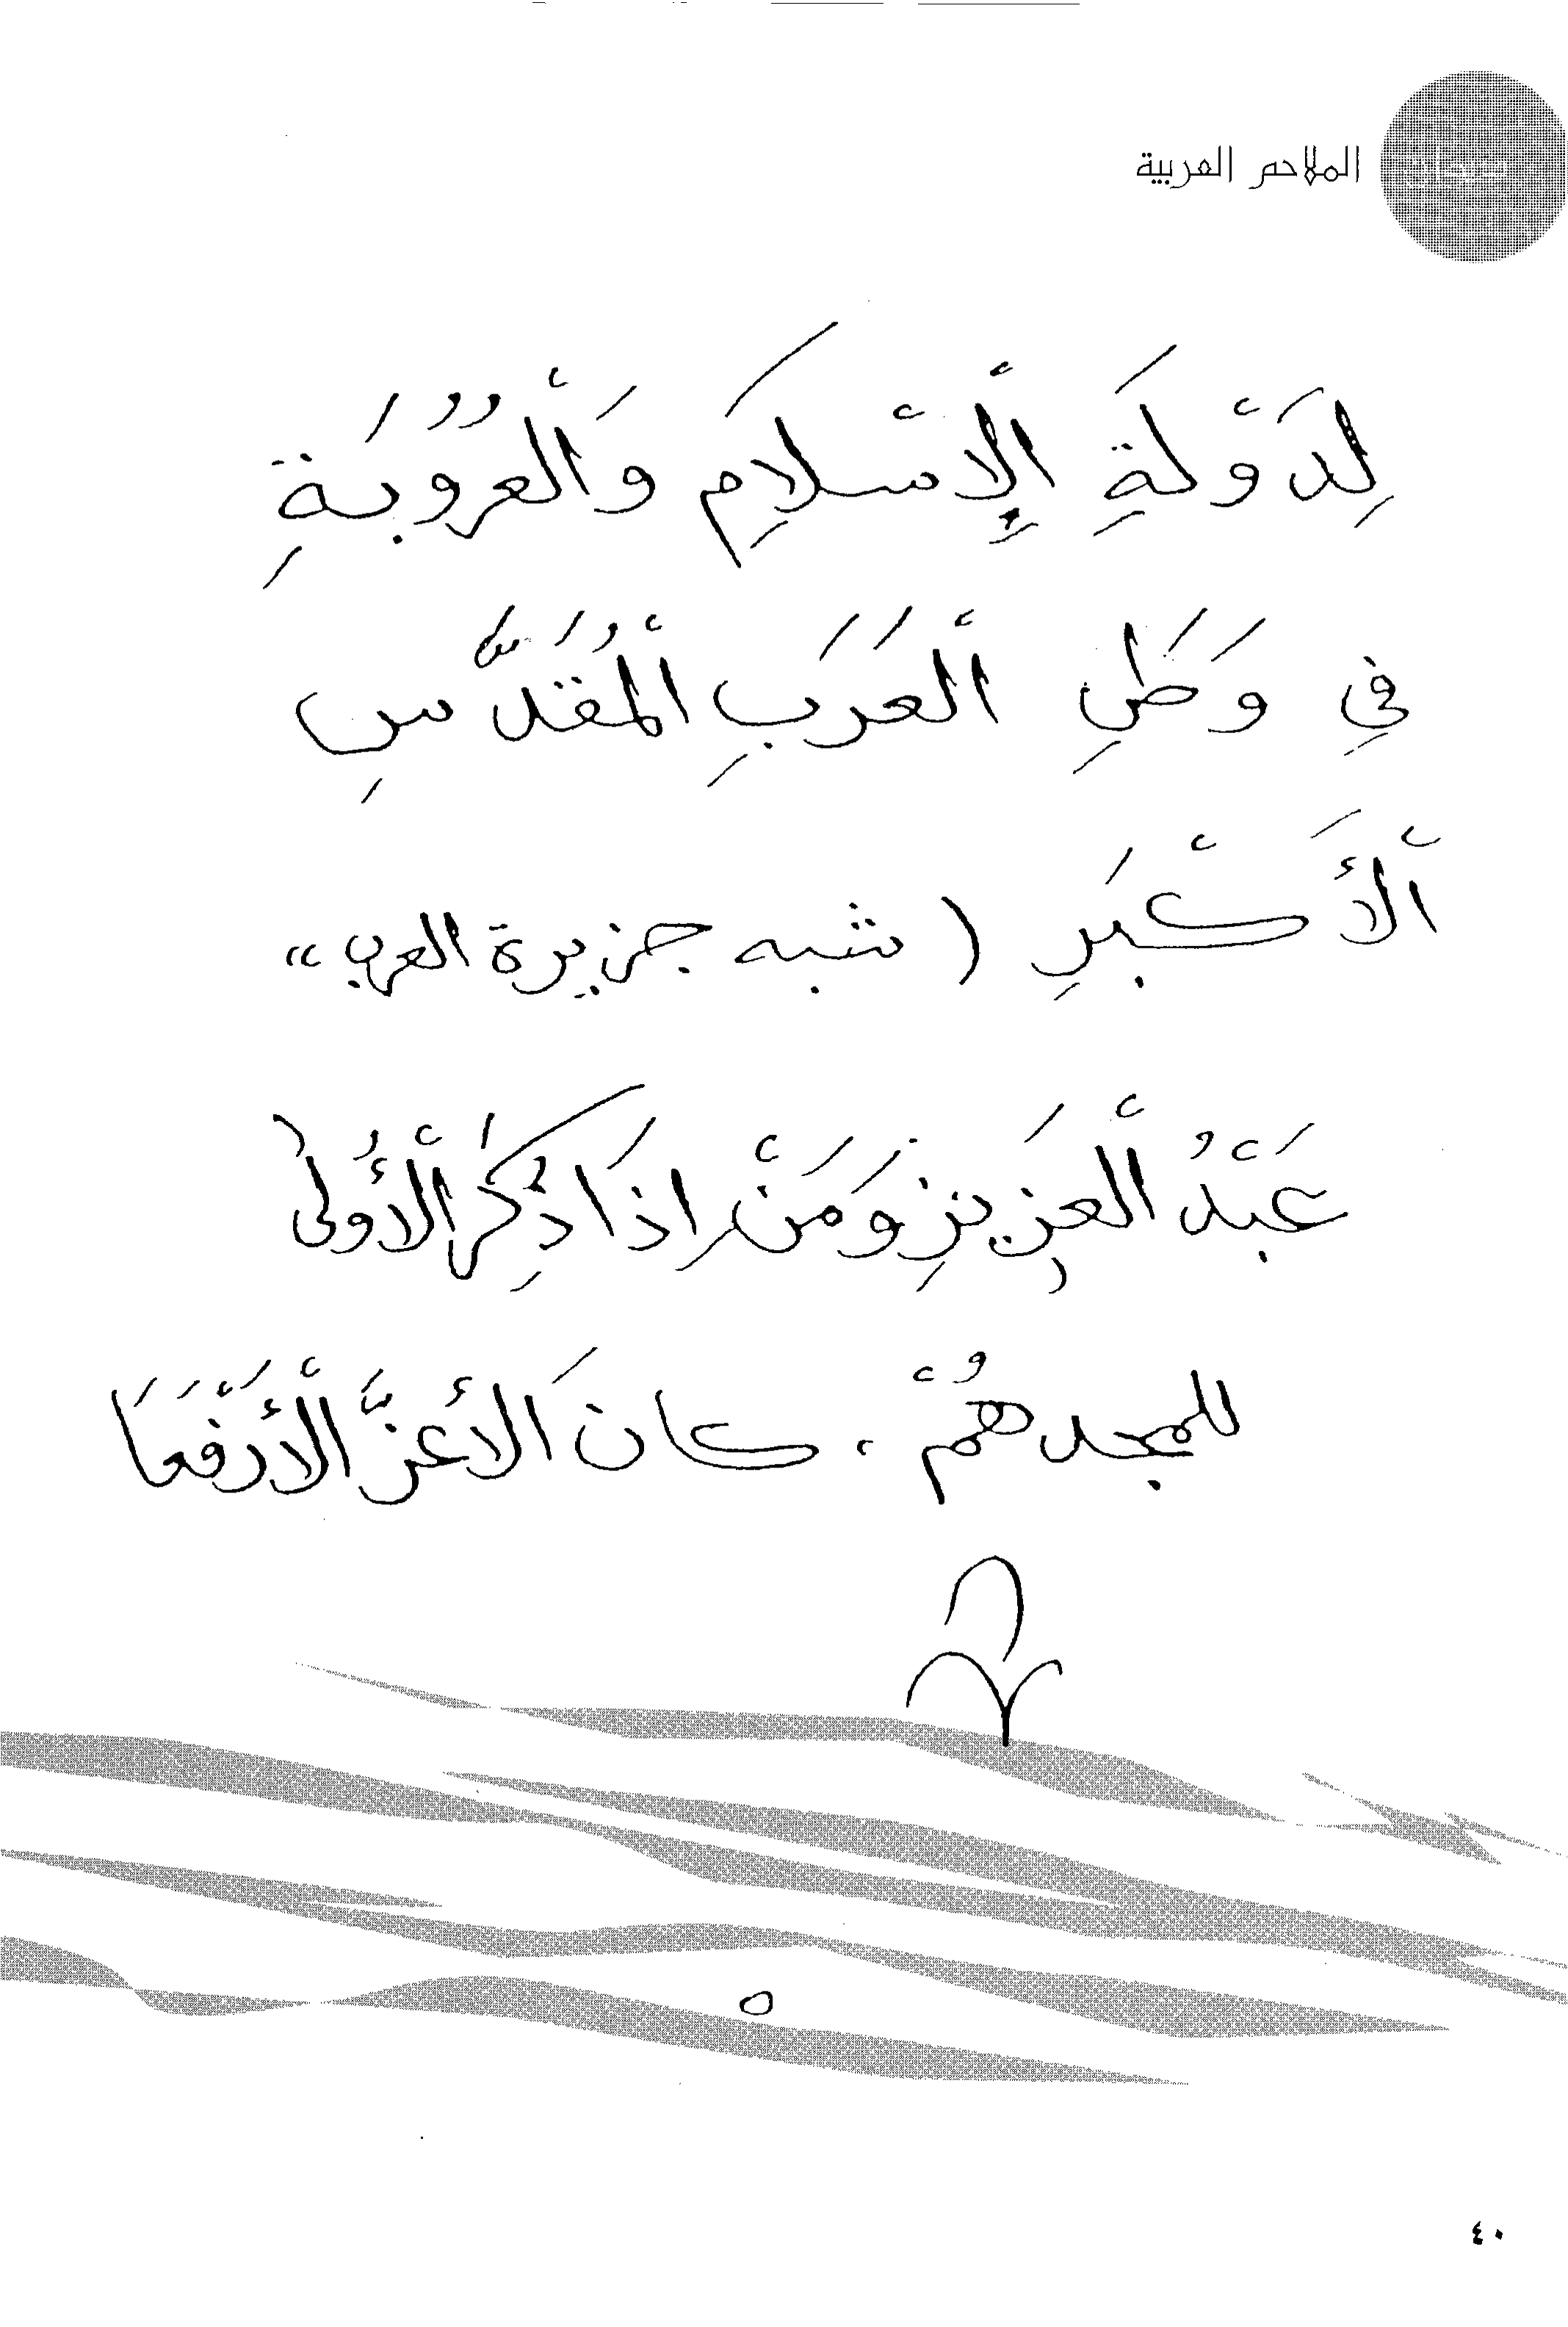 الملاحم العربية
لِدَوْلَةِ ٱلْإِسْلَامِ وَٱلْعُرُوبَةِ
في وَطَنِ ٱلْعَرَبِ ٱلْمُقَدَّسِ
ٱلْأَكْبَرِ ( شبه جزيرة العرب ))
عَبْدُ ٱلْعَزِيزِ وَمَنْ إِذَا ذُكِرَ ٱلْأُولى
للمجد هُمْ ، كانَ الأعزَّ ٱلْأَرْفَعَا
٥
٤٠